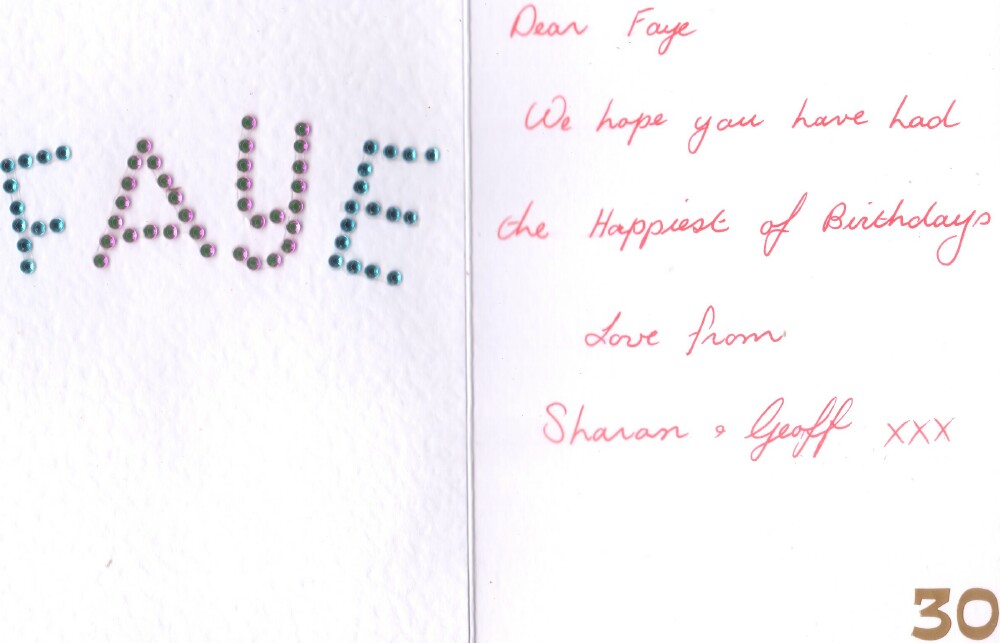 FAYE
Dear Faye
We hope you have had
the Happiest of Birthdays
Love from
Sharan & Geoff xxx
30